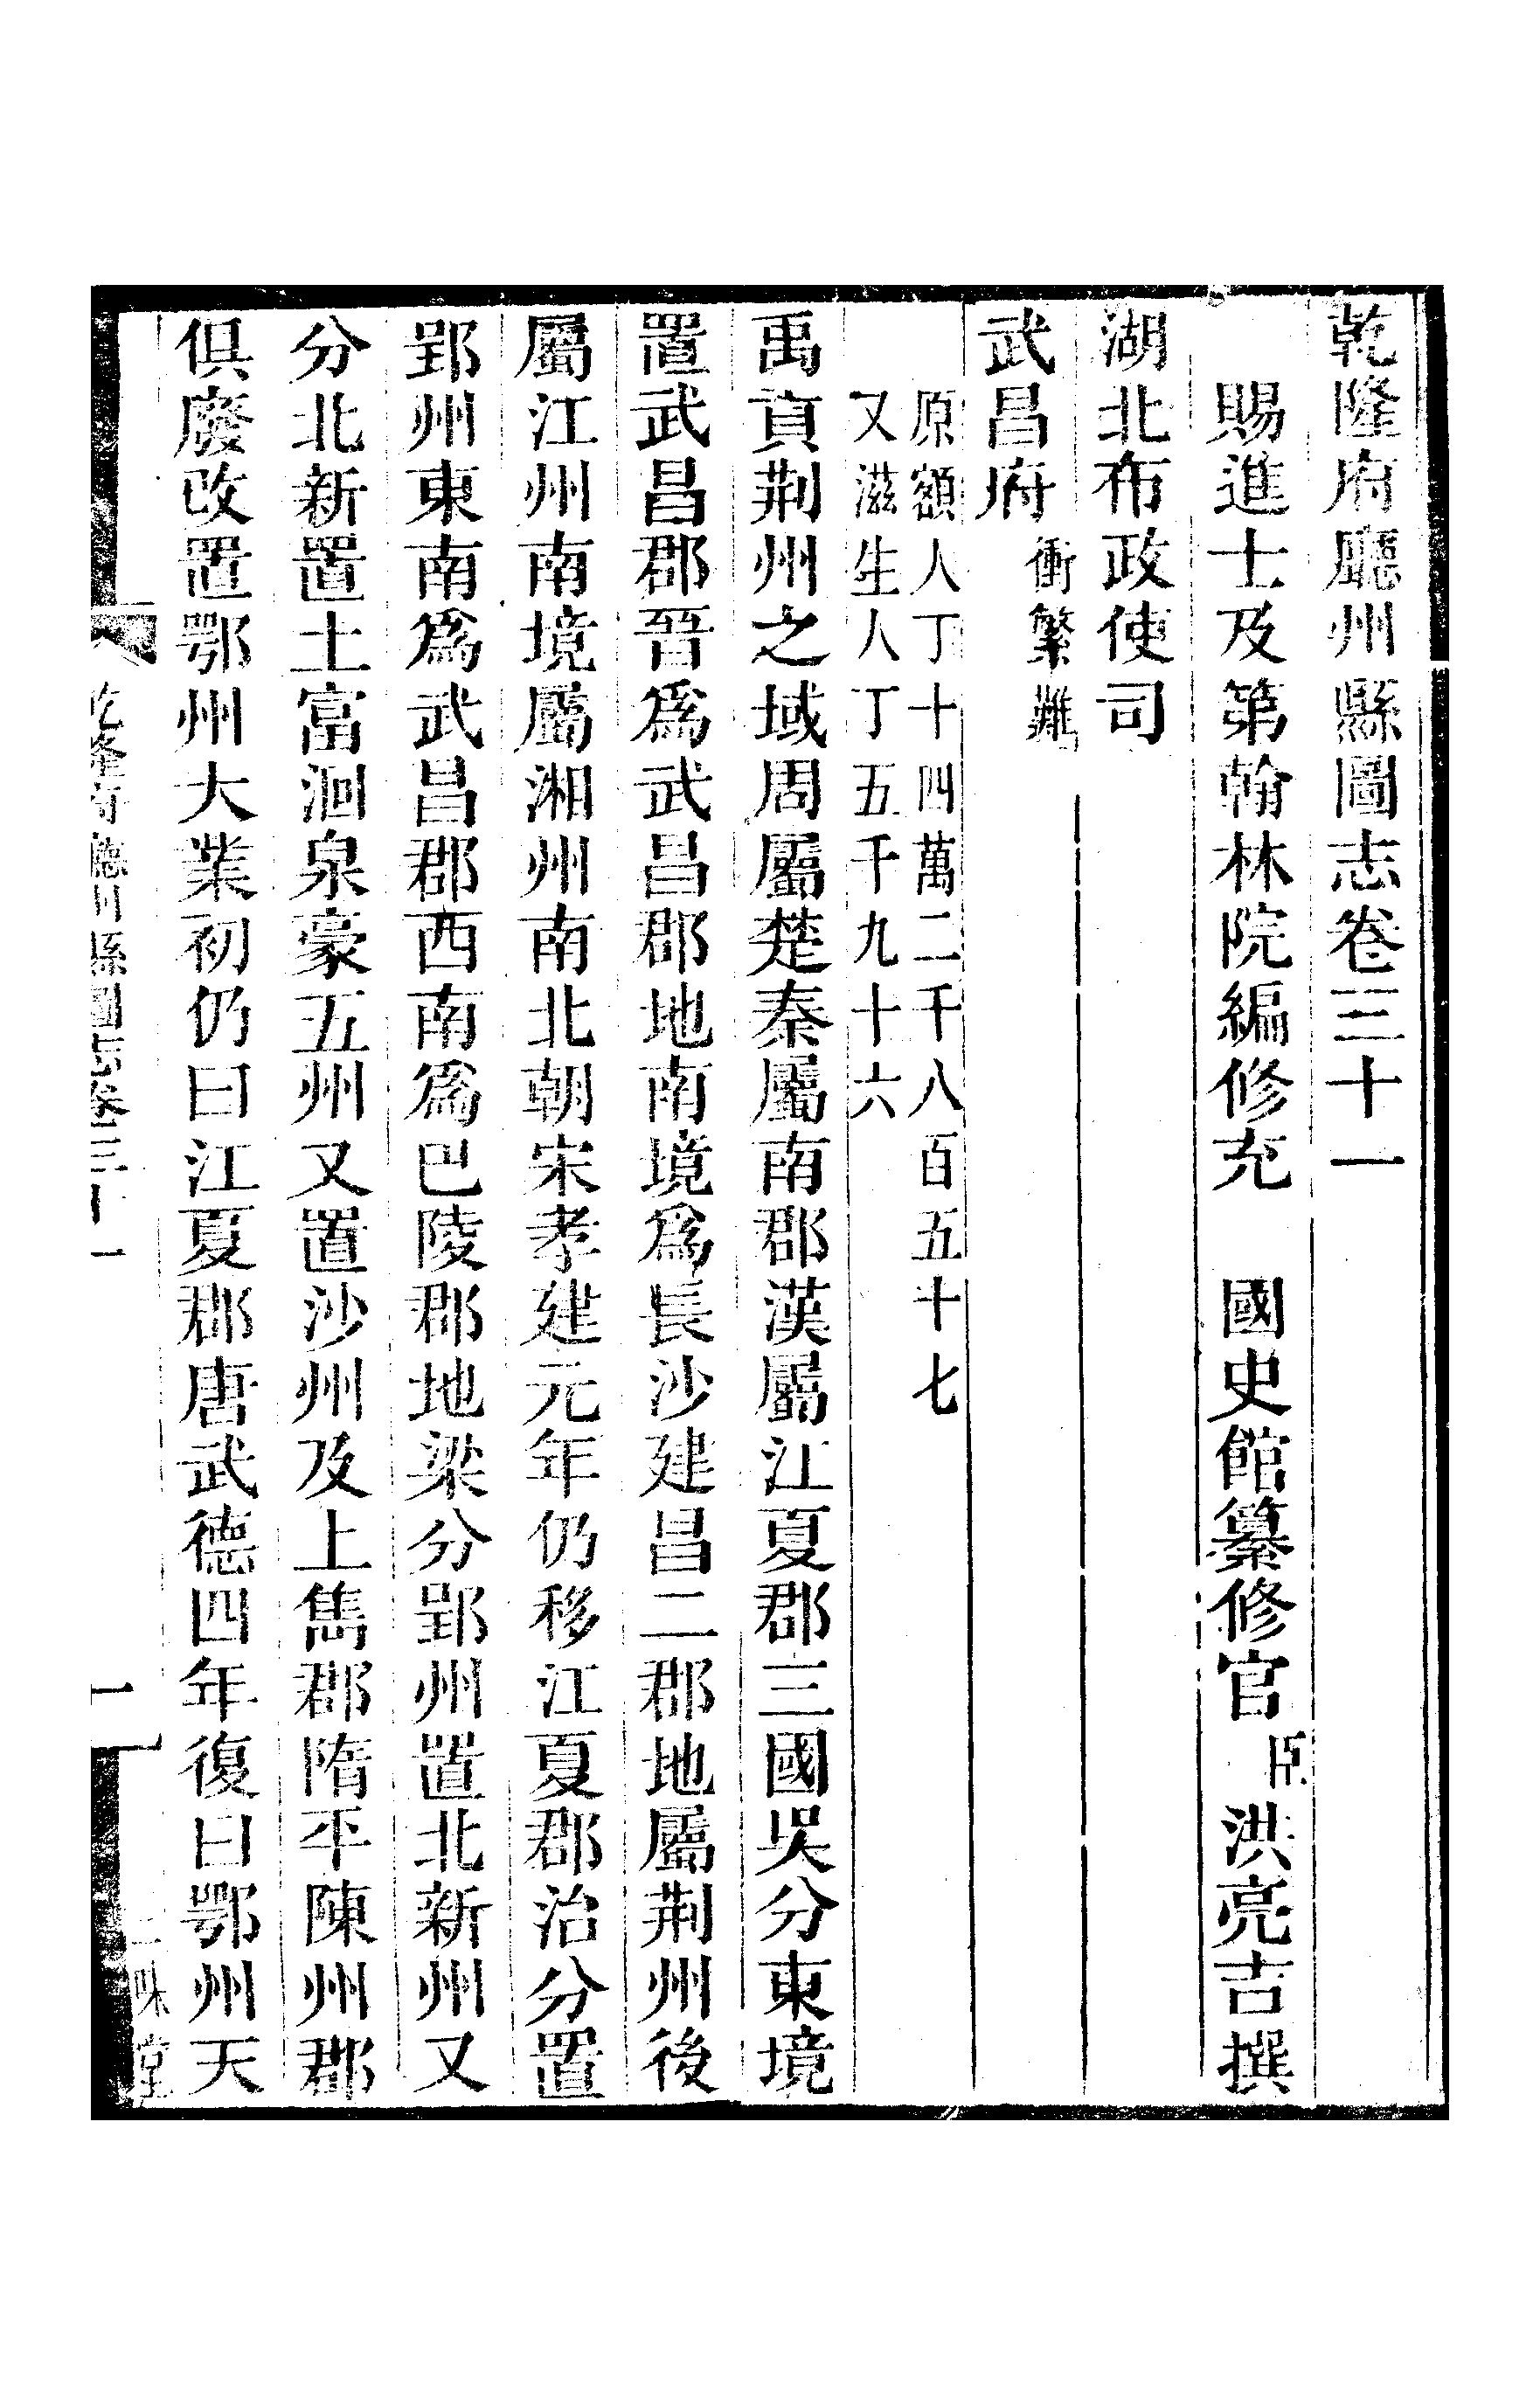 乾隆府廳州縣圖志卷三十一
賜進士及第翰林院編修充　國史館纂修官臣洪亮吉撰
湖北布政使司
武昌府衝繁難
原額人丁十四萬二千八百五十七
又滋生人丁五千九十六
禹貢荆州之域周屬楚秦屬南郡漢屬江夏郡三國吳分東境
置武昌郡晉爲武昌郡地南境爲長沙建昌二郡地屬荆州後
屬江州南境屬湘州南北朝宋孝建元年仍移江夏郡治分置
郢州東南爲武昌郡西南爲巴陵郡地梁分郢州置北新州又
分北新置土富洄泉豪五州又置沙州及上雋郡隋平陳州郡
俱廢改置鄂州大業初仍曰江夏郡唐武德四年復曰鄂州天
乾隆府廳州縣圖志卷三十一
一
味堂